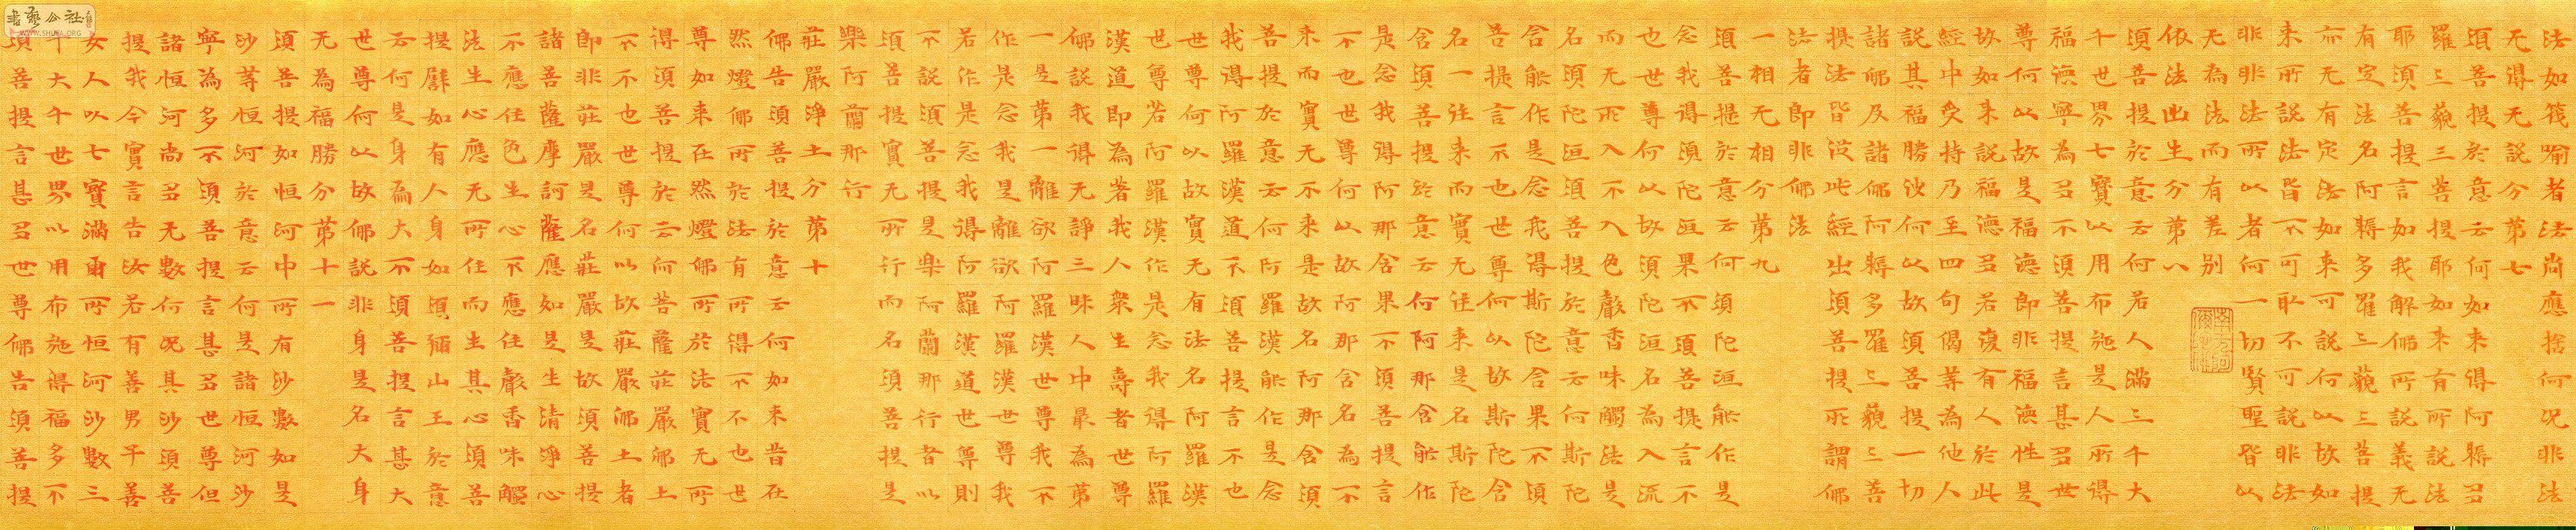 法如筏喻者法尚應捨何况非法
无得无説分第七
須菩提於意云何如来得阿耨多
羅三藐三菩提耶如来有所説法
耶須菩提言如我解佛所説義无
有定法名阿耨多羅三藐三菩提
亦无有定法如来可説何以故如
来所説法皆不可取不可説非法
非非法所以者何一切賢聖皆以
无為法而有差别
依法出生分第八
須菩提於意云何若人滿三千大
千世界七寶以用布施是人所得
福德寧為多不須菩提言甚多世
尊何以故是福德即非福德性是
故如来説福德多若復有人於此
經中受持乃至四句偈等為他人
説其福勝彼何以故須菩提一切
諸佛及諸佛阿耨多羅三藐三菩
提法皆從此經出須菩提所謂佛
法者即非佛法
一相无相分第九
須菩提於意云何須陀洹能作是
念我得須陀洹果不須菩提言不
也世尊何以故須陀洹名為入流
而无所入不入色聲香味觸法是
名須陀洹須菩提於意云何斯陀
含能作是念我得斯陀含果不須
菩提言不也世尊何以故斯陀含
名一往来而實无往来是名斯陀
含須菩提於意云何阿那含能作
是念我得阿那含果不須菩提言
不也世尊何以故阿那含名為不
来而實无不来是故名阿那含須
菩提於意云何阿羅漢能作是念
我得阿羅漢道不須菩提言不也
世尊何以故實无有法名阿羅漢
世尊若阿羅漢作是念我得阿羅
漢道即為著我人衆生壽者世尊
佛説我得无諍三昧人中最為第
一是第一離欲阿羅漢世尊我不
作是念我是離欲阿羅漢世尊我
若作是念我得阿羅漢道世尊則
不説須菩提是樂阿蘭那行者以
須菩提實无所行而名須菩提是
樂阿蘭那行
莊嚴淨土分第十
佛告須菩提於意云何如来昔在
然燈佛所於法有所得不不也世
尊如来在然燈佛所於法實无所
得須菩提於云何菩薩莊嚴佛土
不不也世尊何以故莊嚴佛土者
即非莊嚴是名莊嚴是故須菩提
諸菩薩摩訶薩應如是生清淨心
不應住色生心不應住聲香味觸
法生心應无所住而生其心須菩
提譬如有人身如須彌山王於意
云何是身為大不須菩提言甚大
世尊何以故佛説非身是名大身
无為福勝分第十一
須菩提如恒河中所有沙數如是
沙等恒河於意云何是諸恒河沙
寧為多不須菩提言甚多世尊但
諸恒河尚多无數何况其沙須菩
提我今實言告汝若有善男子善
女人以七寶滿爾所恒河沙數三
千大千世界以用布施得福多不
須菩提言甚多世尊佛告須菩提
書藝公社
WWW.SHUFA.ORG